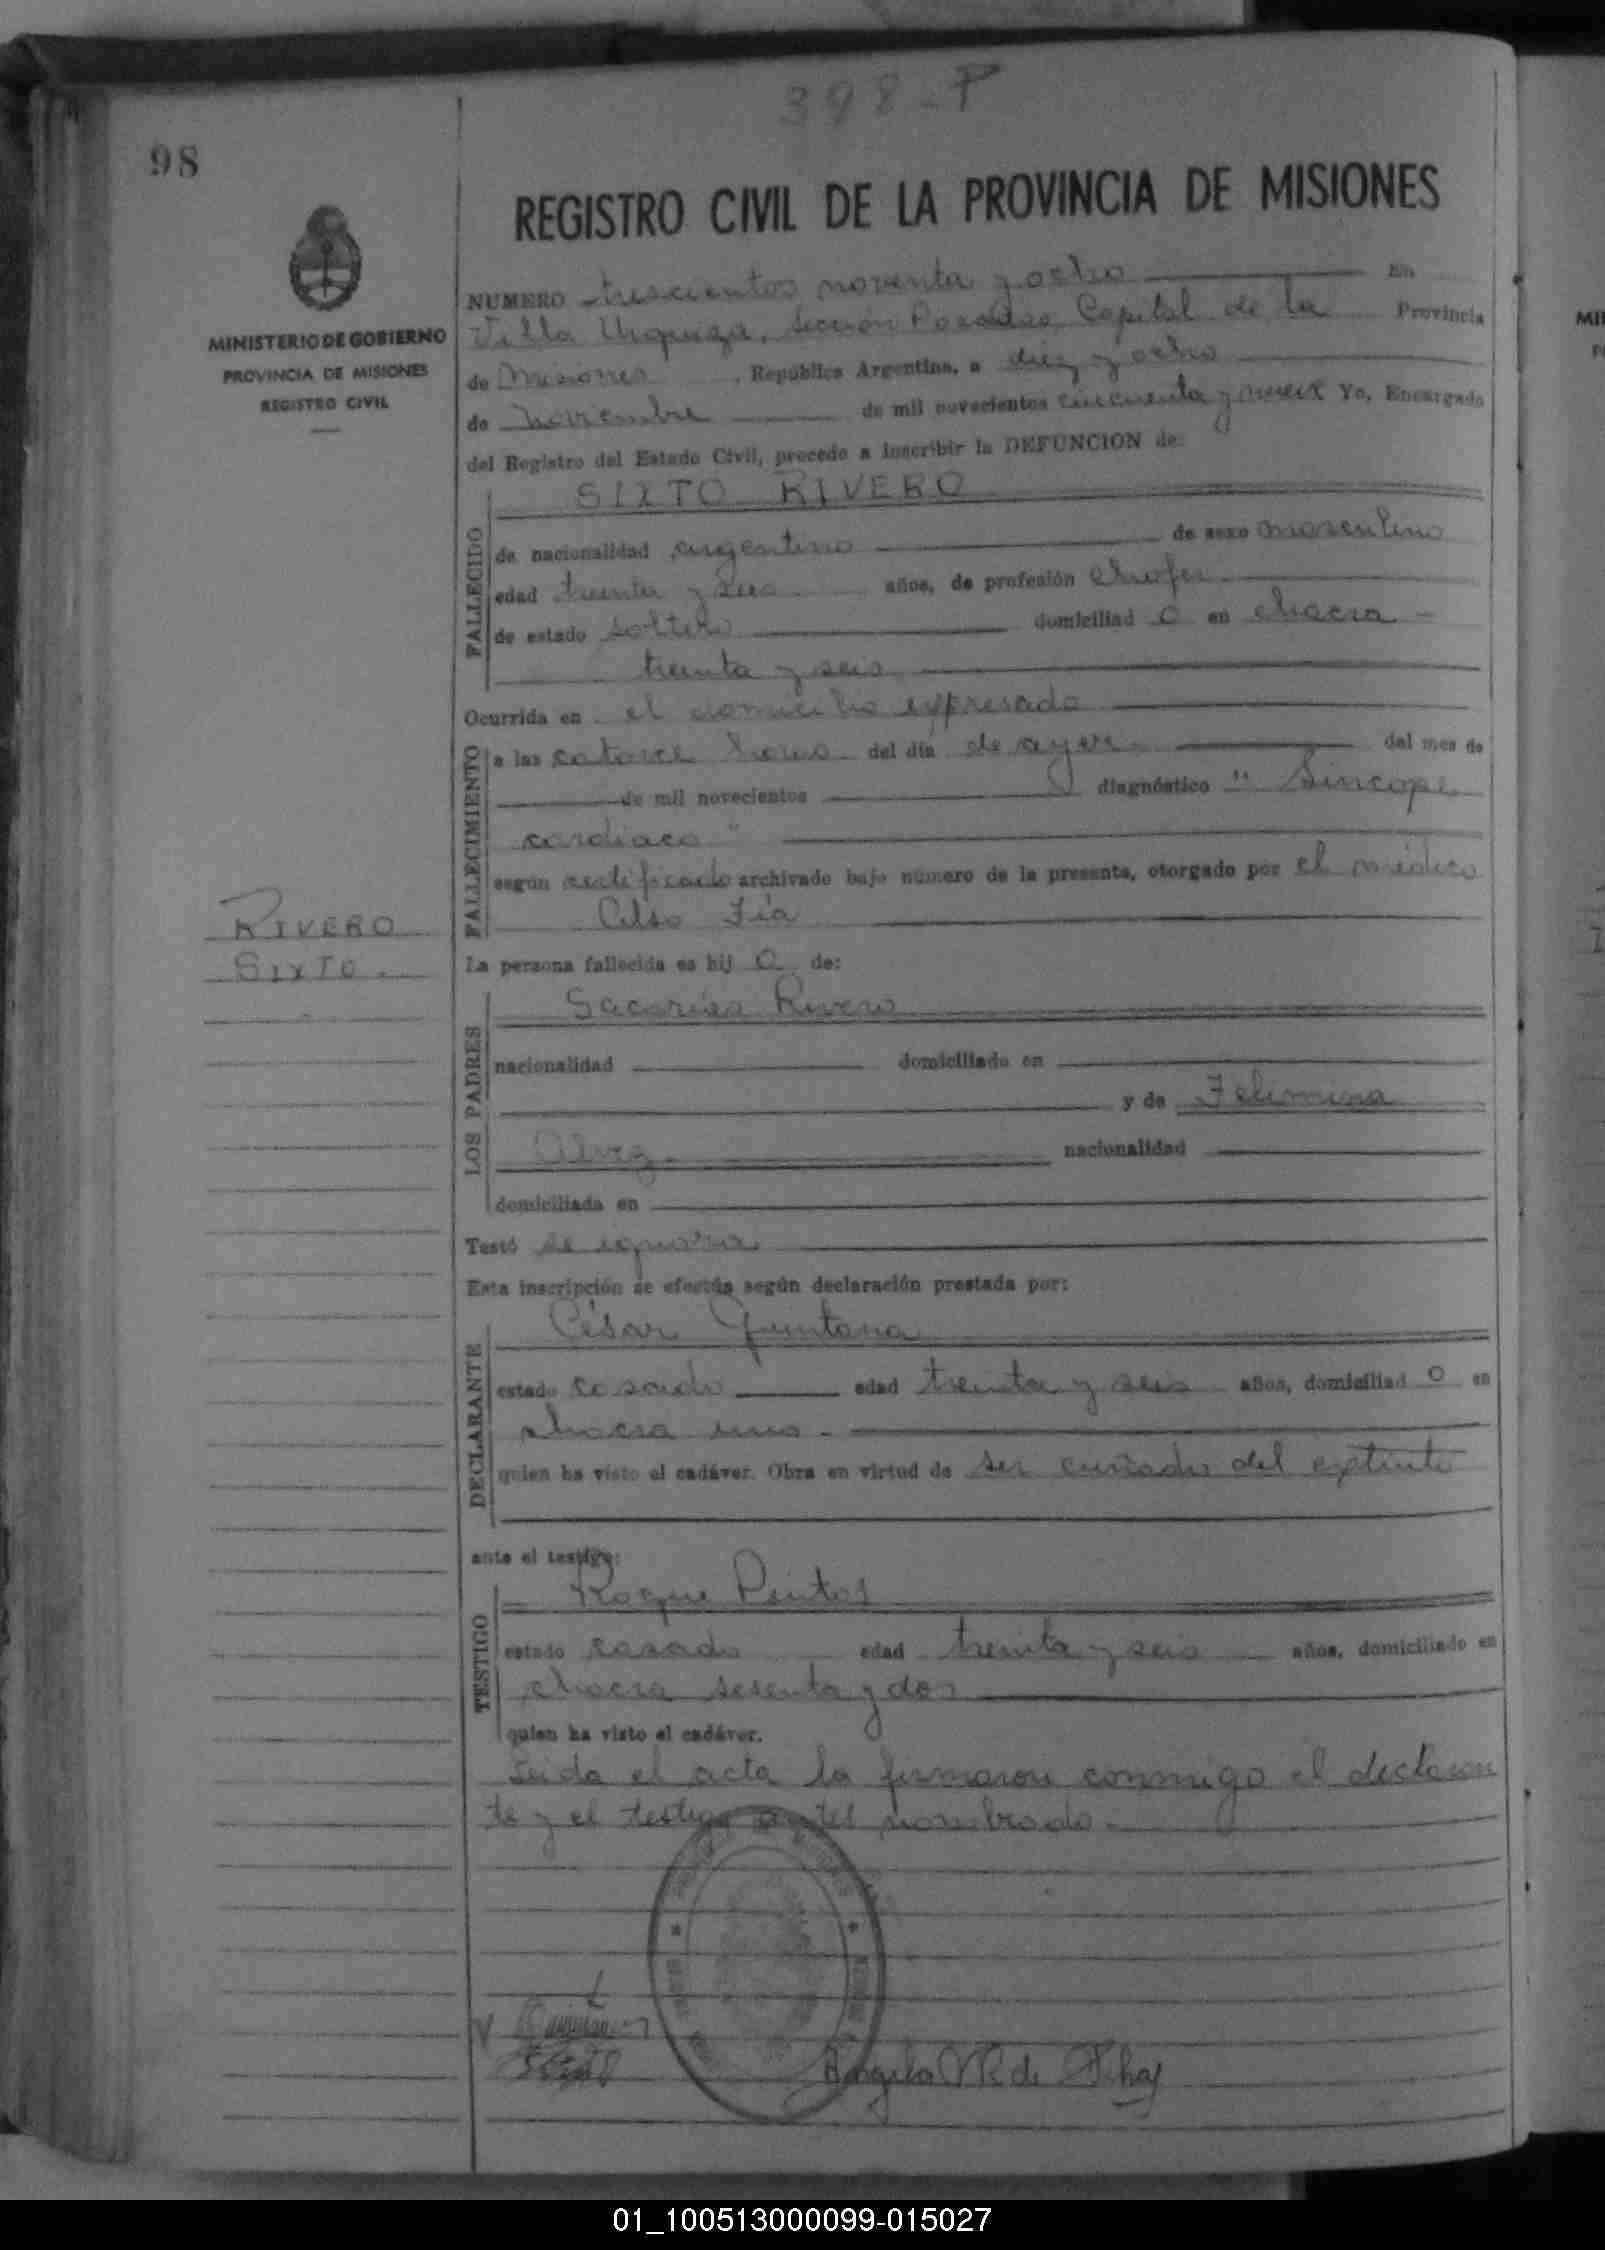 398-P
98
REGISTRO CIVIL DE LA PROVINCIA DE MISIONES
MINISTERIO DE GOBIERNO
PROVINCIA DE MISIONES
REGISTRO CIVIL
NUMERO trescientos noventa y ocho En
Villa Urquiza, sección Posadas Capital de la Provincia
de Misiones, República Argentina, a diez y ocho
de noviembre de mil novecientos cincuenta y Yo, Encargado
del Registro del Estado Civil, procedo a inscribir la DEFUNCION de:
FALLECIDO
SIXTO RIVERO
de nacionalidad argentino de sexo masculino
edad treinta y seis años, de profesión chofer
de estado soltero domiciliad o en chacra
treinta y seis
Ocurrida en el domicilio expresado
FALLECIMIENTO
a las catorce horas del día de ayer. del mes de
de mil novecientos diagnóstico "Sincope
cardiaco"
según certificado archivado bajo número de la presente, otorgado por el médico
Celso Fía
RIVERO
SIXTO.
La persona fallecida es hij o de:
LOS PADRES
Sacarías Rivero
nacionalidad domiciliado en
y de Felimina
Alvez.
nacionalidad
domiciliada en
Testó se ignora
Esta inscripción se efectúa según declaración prestada por:
DECLARANTE
César Quintana
estado casado edad treinta y seis años, domiciliad o en
chacra uno.
quien ha visto el cadáver. Obra en virtud de ser cuñado del extinto
ante el testigo:
TESTIGO
Roque Pintos
estado casado edad treinta y seis años, domiciliado en
chacra sesenta y dos
quien ha visto el cadáver.
Leida el acta la firmaron conmigo el declaran
te y el testigo antes nombrado.
Angela M. de
01_100513000099-015027